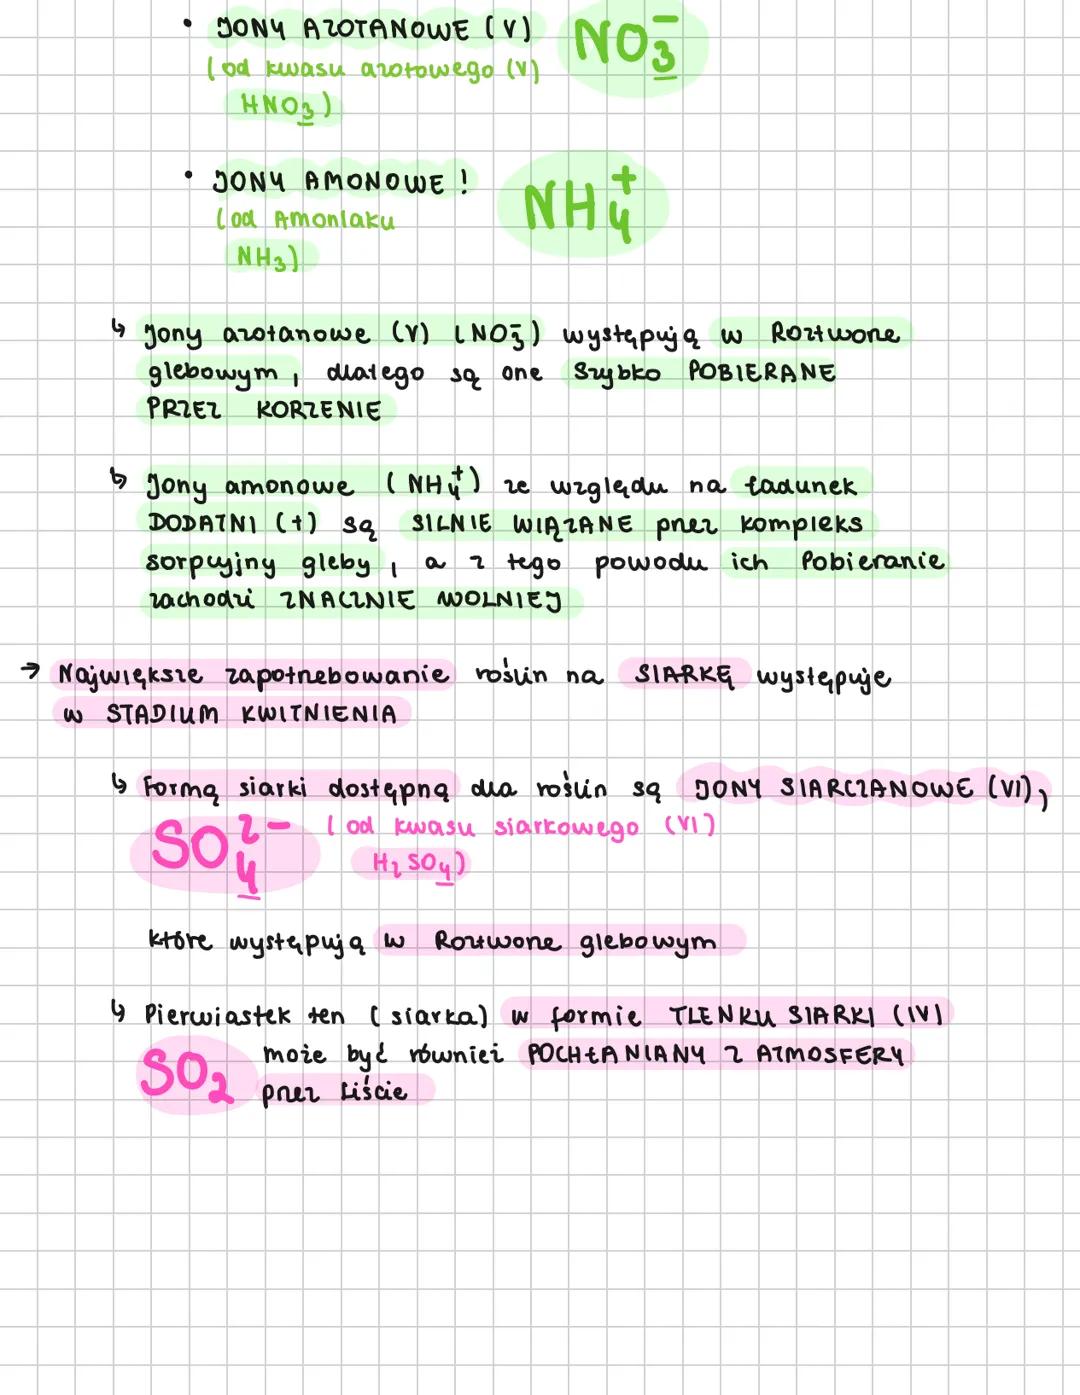 • JONY AZOTANOWE (V) NO₃⁻
(od kwasu azotowego (V)
HNO₃)
• JONY AMONOWE! NH₄⁺
(od Amoniaku
NH₃)
↳ Jony azotanowe (V) (NO₃⁻) występują w Roztworze
glebowym, dlatego są one Szybko POBIERANE
PRZEZ KORZENIE
↳ Jony amonowe (NH₄⁺) ze względu na ładunek
DODATNI (+) są SILNIE WIĄZANE przez kompleks
sorpcyjny gleby, a z tego powodu ich Pobieranie
zachodzi ZNACZNIE WOLNIEJ
→ Największe zapotrzebowanie roślin na SIARKĘ występuje
w STADIUM KWITNIENIA
↳ Formą siarki dostępną dla roślin są JONY SIARCZANOWE (VI),
SO₄²⁻ (od kwasu siarkowego (VI)
H₂SO₄)
które występują w Roztworze glebowym
↳ Pierwiastek ten (siarka) w formie TLENKU SIARKI (IV)
SO₂ może być również POCHŁANIANY Z ATMOSFERY
przez Liście